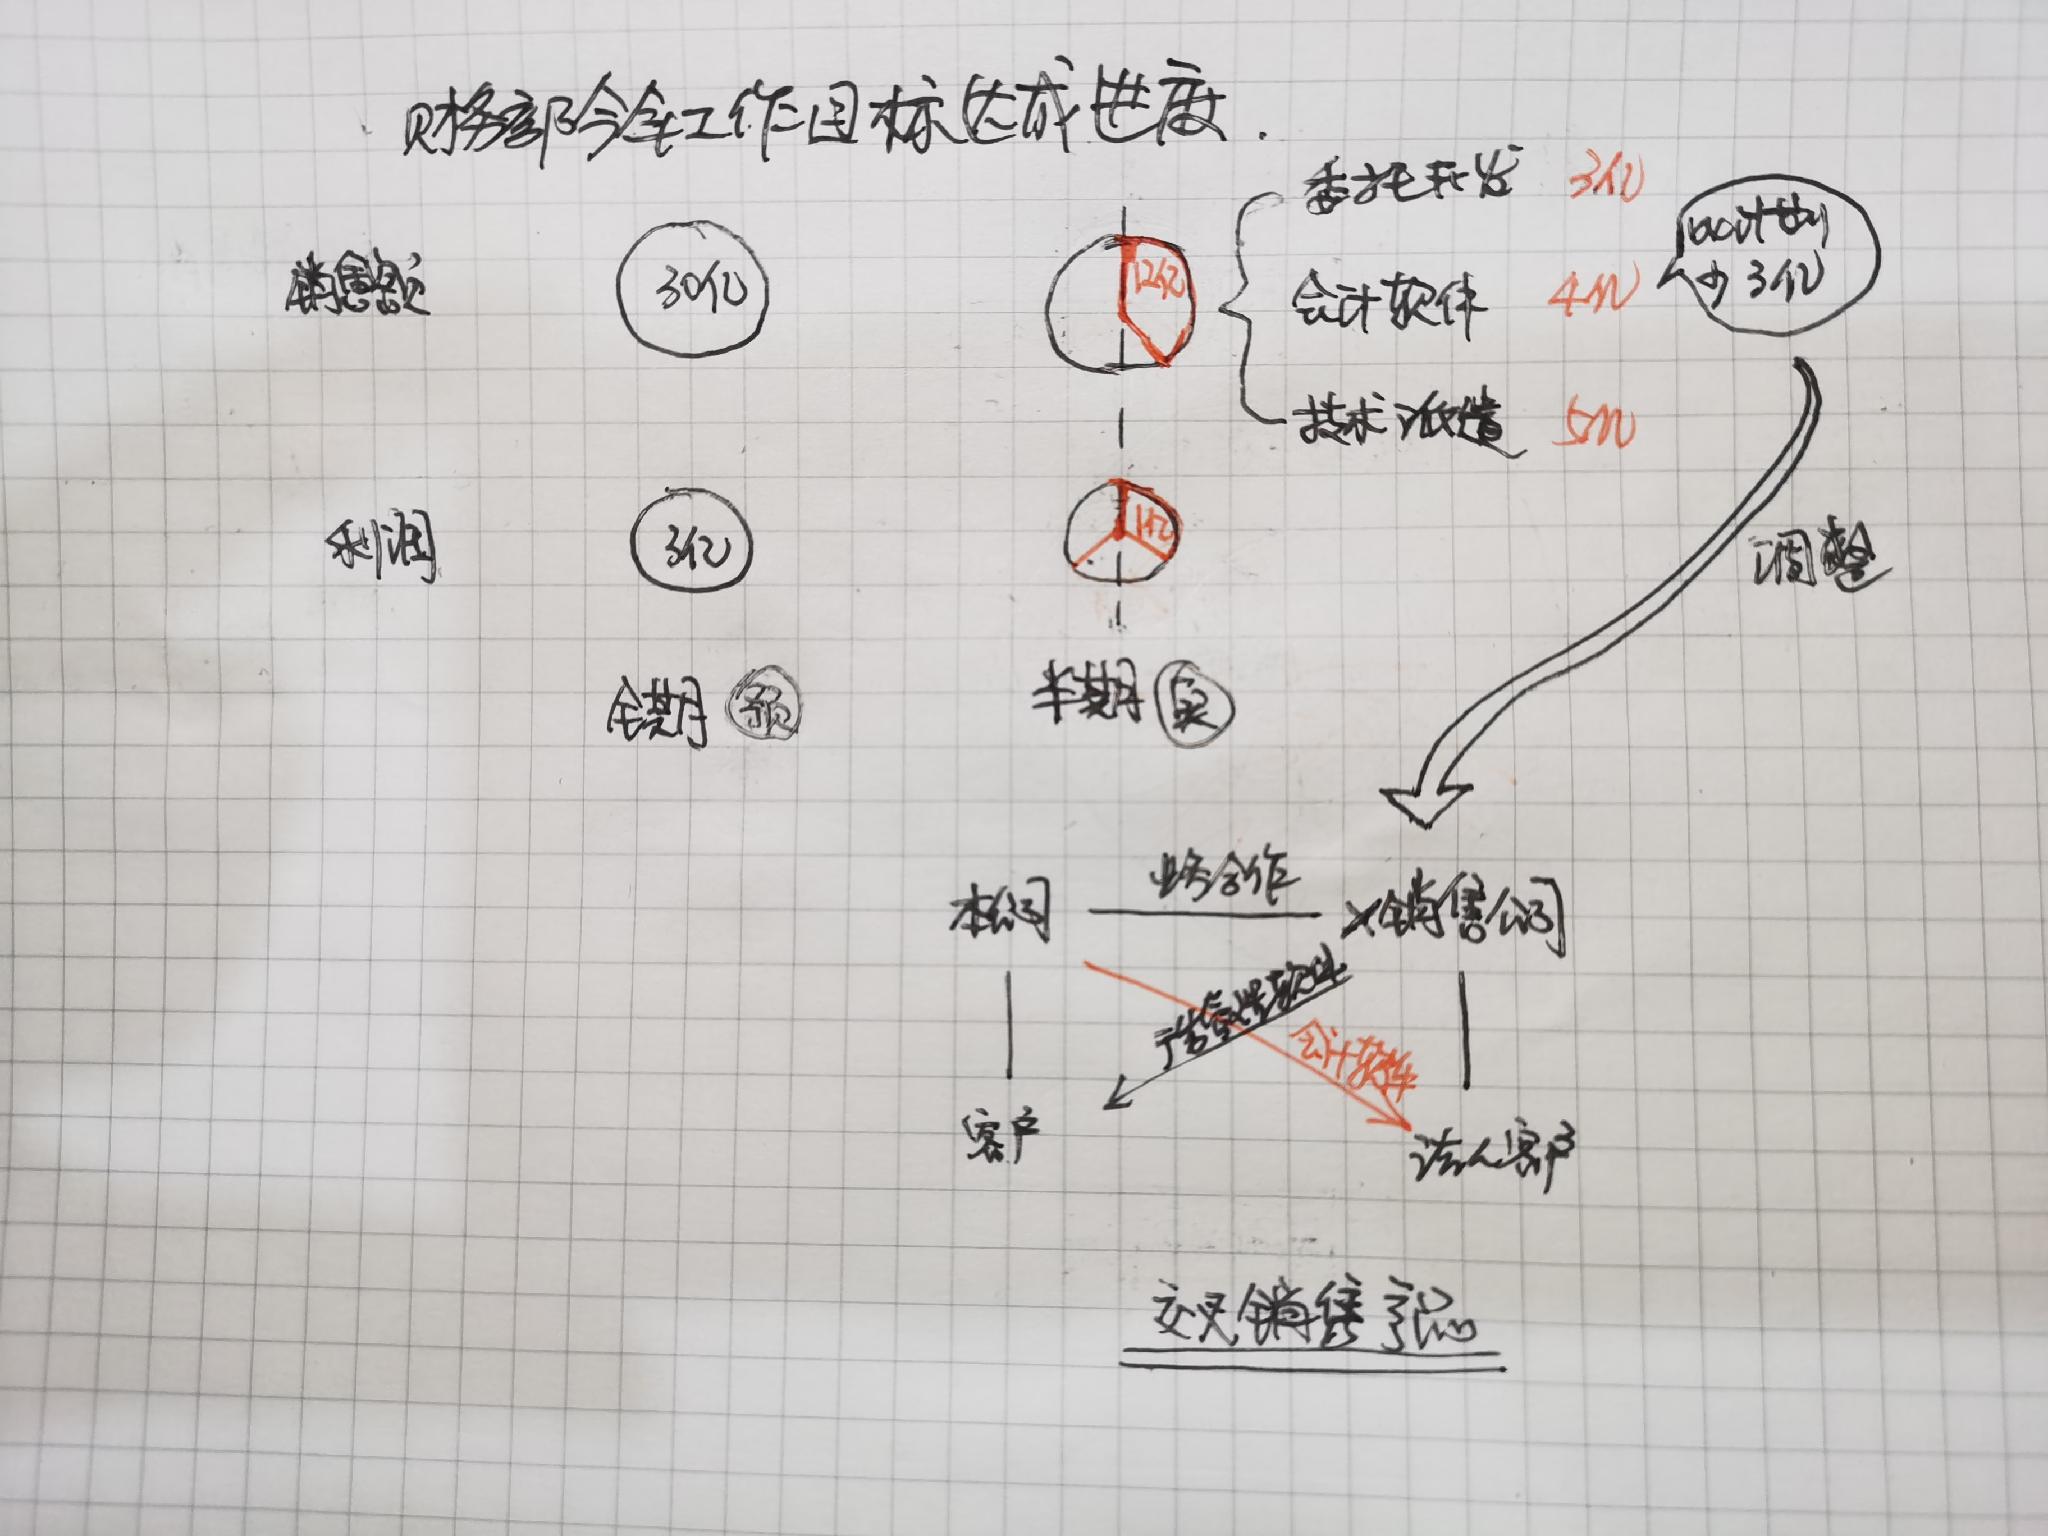 财务部今年工作目标达成进度.
委托开发 3亿
销售额 30亿 12亿 会计软件 4亿 比计划少3亿
技术派遣 5亿
利润 3亿 1亿
调整
全期 预 半期 实
本公司 业务合作 X销售公司
广告宣传软件
会计软件
客户 法人客户
交叉销售